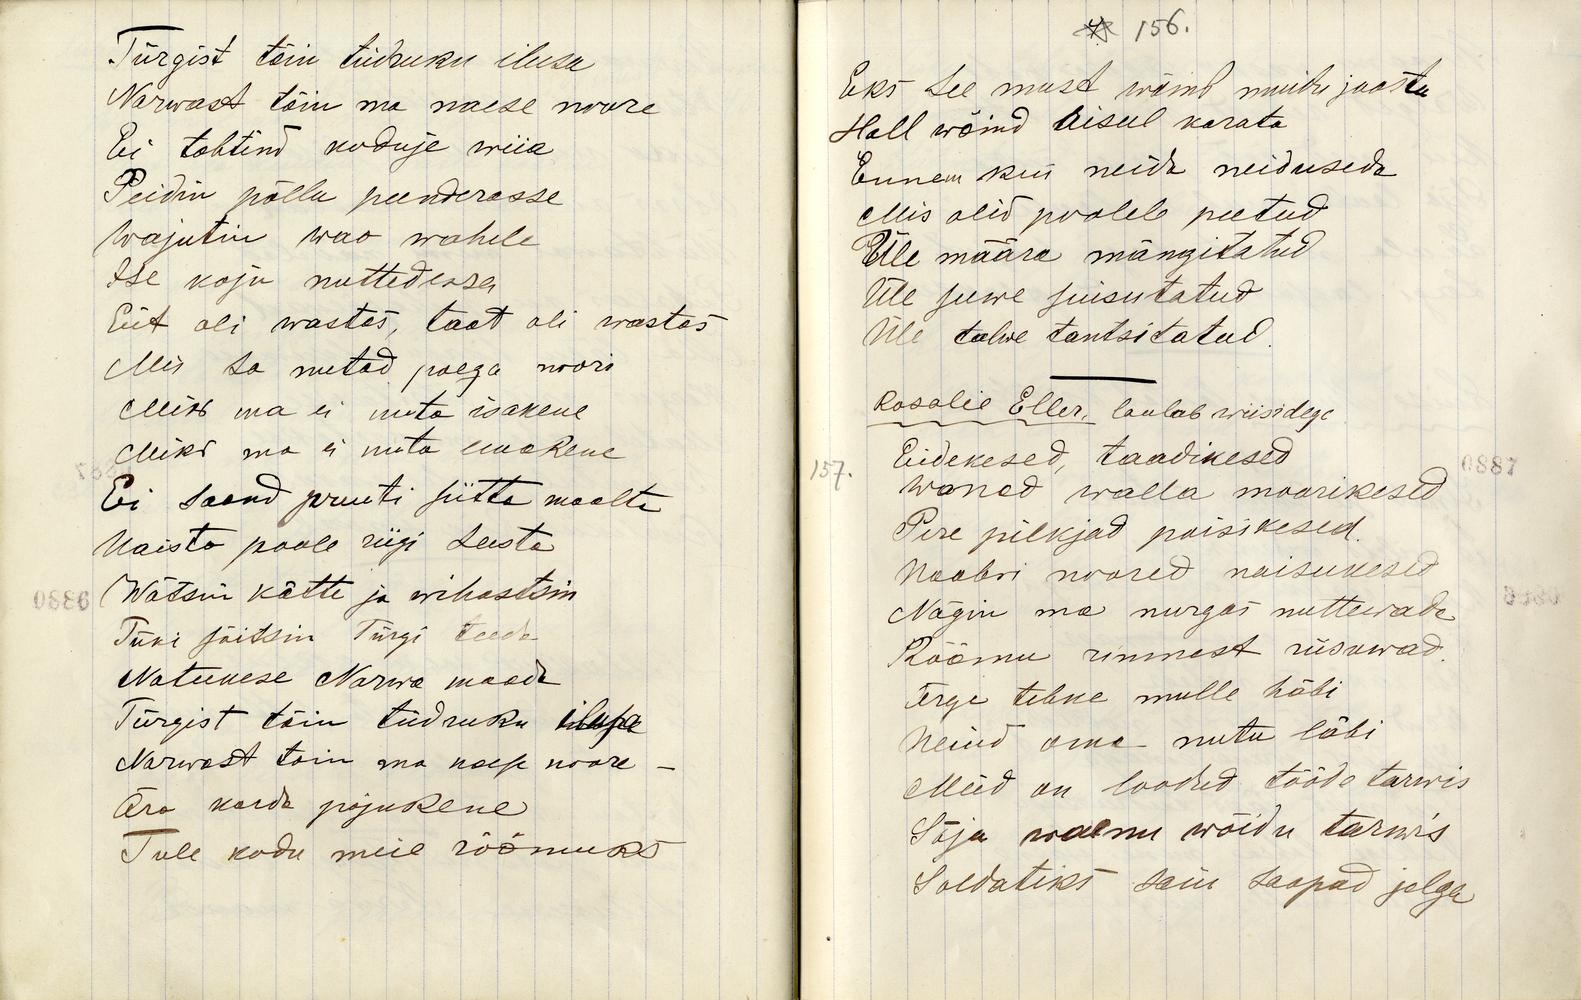 Türgist tõin tüdruku ilusa
Narwast tõin ma naese noore
Ei tahtind koduje wiia
Peidin põllu peenderasse
Wajutin wao wahele
Ise koju nuttedessa
Eit oli wastas, taat oli wastas
Mis sa nutad poega noori
Miks ma ei nuta isakene
Miks ma ei nuta emakene
Ei saand pruuti siitta maalta
Naista poole riigi seesta
Wõtsin kätte ja wihastsin
Tüki sõitsin Türgi teeda
Natukese Narwa maada
Türgist tõin tüdruku ilusa
Narwast tõin ma naese noore –
Ära karda pojukene
Tule kodu meie rõõmuks
156.
Eks see must wõind muidu joosta
Hall wõind aisul karata
Ennem kui neida neiduseda
Mis olid poolele peetud
Üle määra mängitatud
Üle suwe suisutatud
Üle talwe tantsitatud.
Rosalie Eller. laulab wiisidega
157.
Eidekesed, taadikesed
Wanad walla moorikesed
Pere pilkjad poisikesed.
Naabri noored naisukesed
Nägin ma nurgas nuttewada
Rõõmu rinnast riisuwad.
Ärge tehke mulle häbi
Neiud oma nutu läbi
Meid on loodud tööde tarwis
Sõja waenu wõidu tarwis
Soldatiks sain saapad jalga
0886
0887